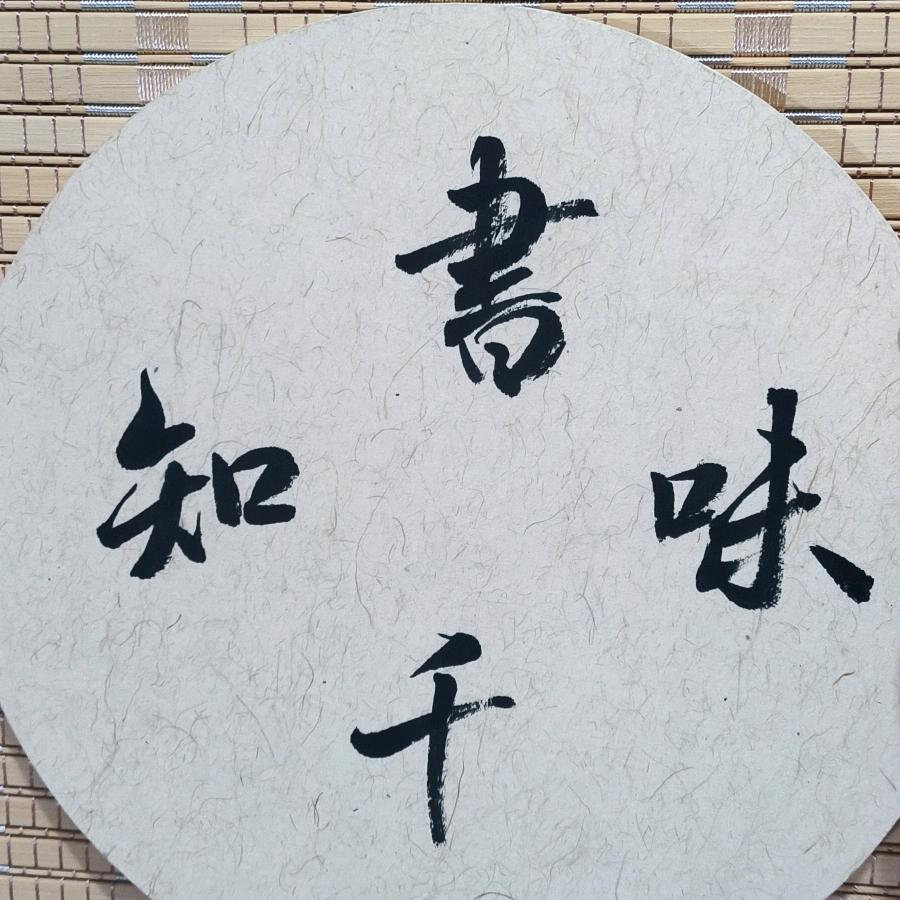 書
味
千
知